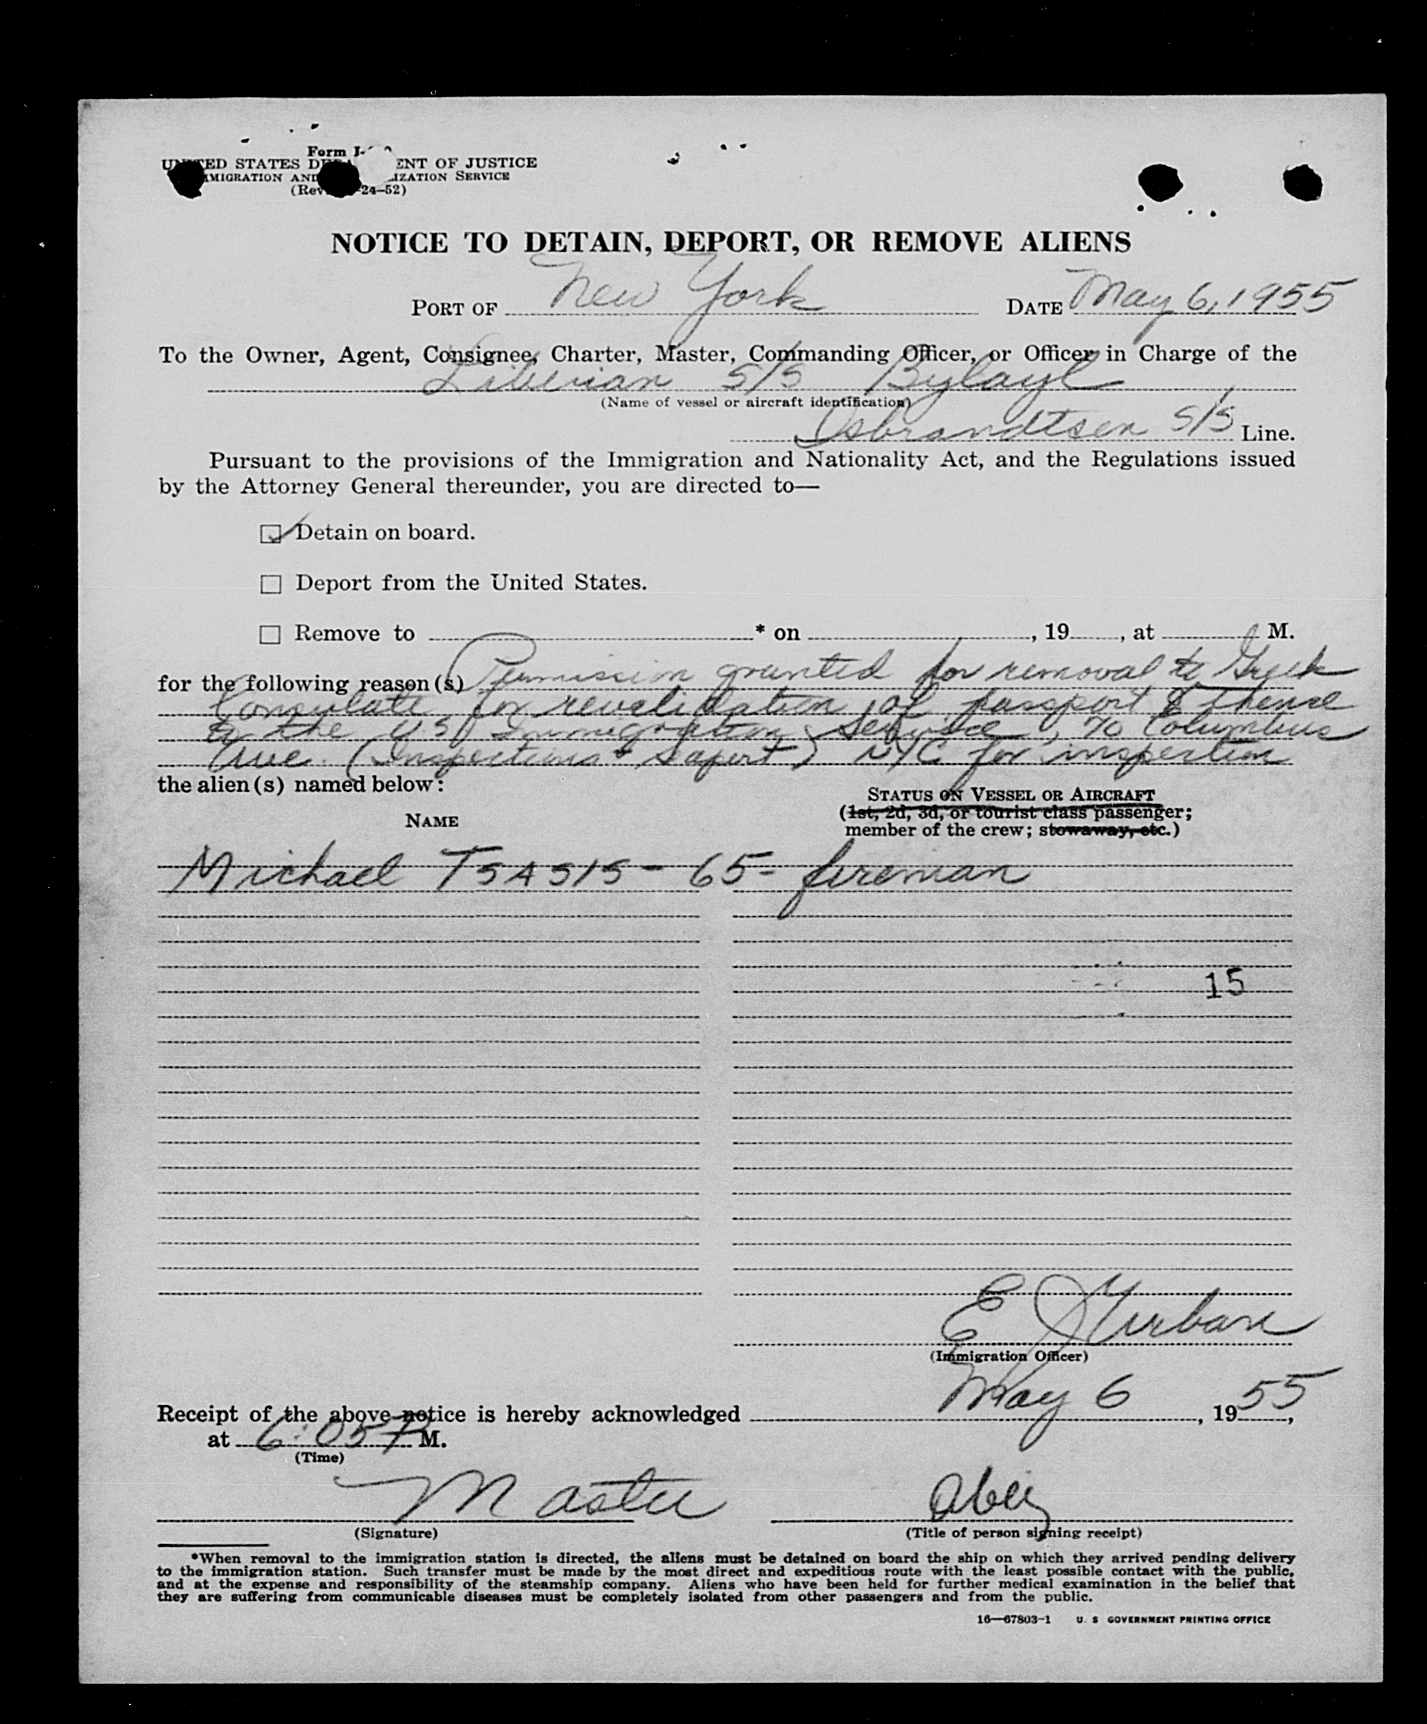 Form I-
UNITED STATES DEPA ENT OF JUSTICE
IMMIGRATION AND IZATION SERVICE
(Rev. -24-52)
NOTICE TO DETAIN, DEPORT, OR REMOVE ALIENS
PORT OF New York DATE May 6, 1955
To the Owner, Agent, Consignee, Charter, Master, Commanding Officer, or Officer in Charge of the
Liberian S/S Bylayl
(Name of vessel or aircraft identification)
Isbrandtsen S/S Line.
Pursuant to the provisions of the Immigration and Nationality Act, and the Regulations issued
by the Attorney General thereunder, you are directed to—
☑ Detain on board.
☐ Deport from the United States.
☐ Remove to * on , 19 , at M.
for the following reason(s) Permission granted for removal to Greek
Consulate for revalidation of passport & thence
to the U.S. Immigration Service, 70 Columbus
Ave. (Inspections & ) NYC for inspection
the alien(s) named below:
NAME
STATUS ON VESSEL OR AIRCRAFT
(1st, 2d, 3d, or tourist class passenger;
member of the crew; stowaway, etc.)
Michael TSASIS - 65 - fireman
15
E
(Immigration Officer)
Receipt of the above notice is hereby acknowledged May 6, 1955,
at 6:05 P M.
(Time)
Master
(Signature)
(Title of person signing receipt)
*When removal to the immigration station is directed, the aliens must be detained on board the ship on which they arrived pending delivery
to the immigration station. Such transfer must be made by the most direct and expeditious route with the least possible contact with the public,
and at the expense and responsibility of the steamship company. Aliens who have been held for further medical examination in the belief that
they are suffering from communicable diseases must be completely isolated from other passengers and from the public.
16—67803-1 U. S GOVERNMENT PRINTING OFFICE